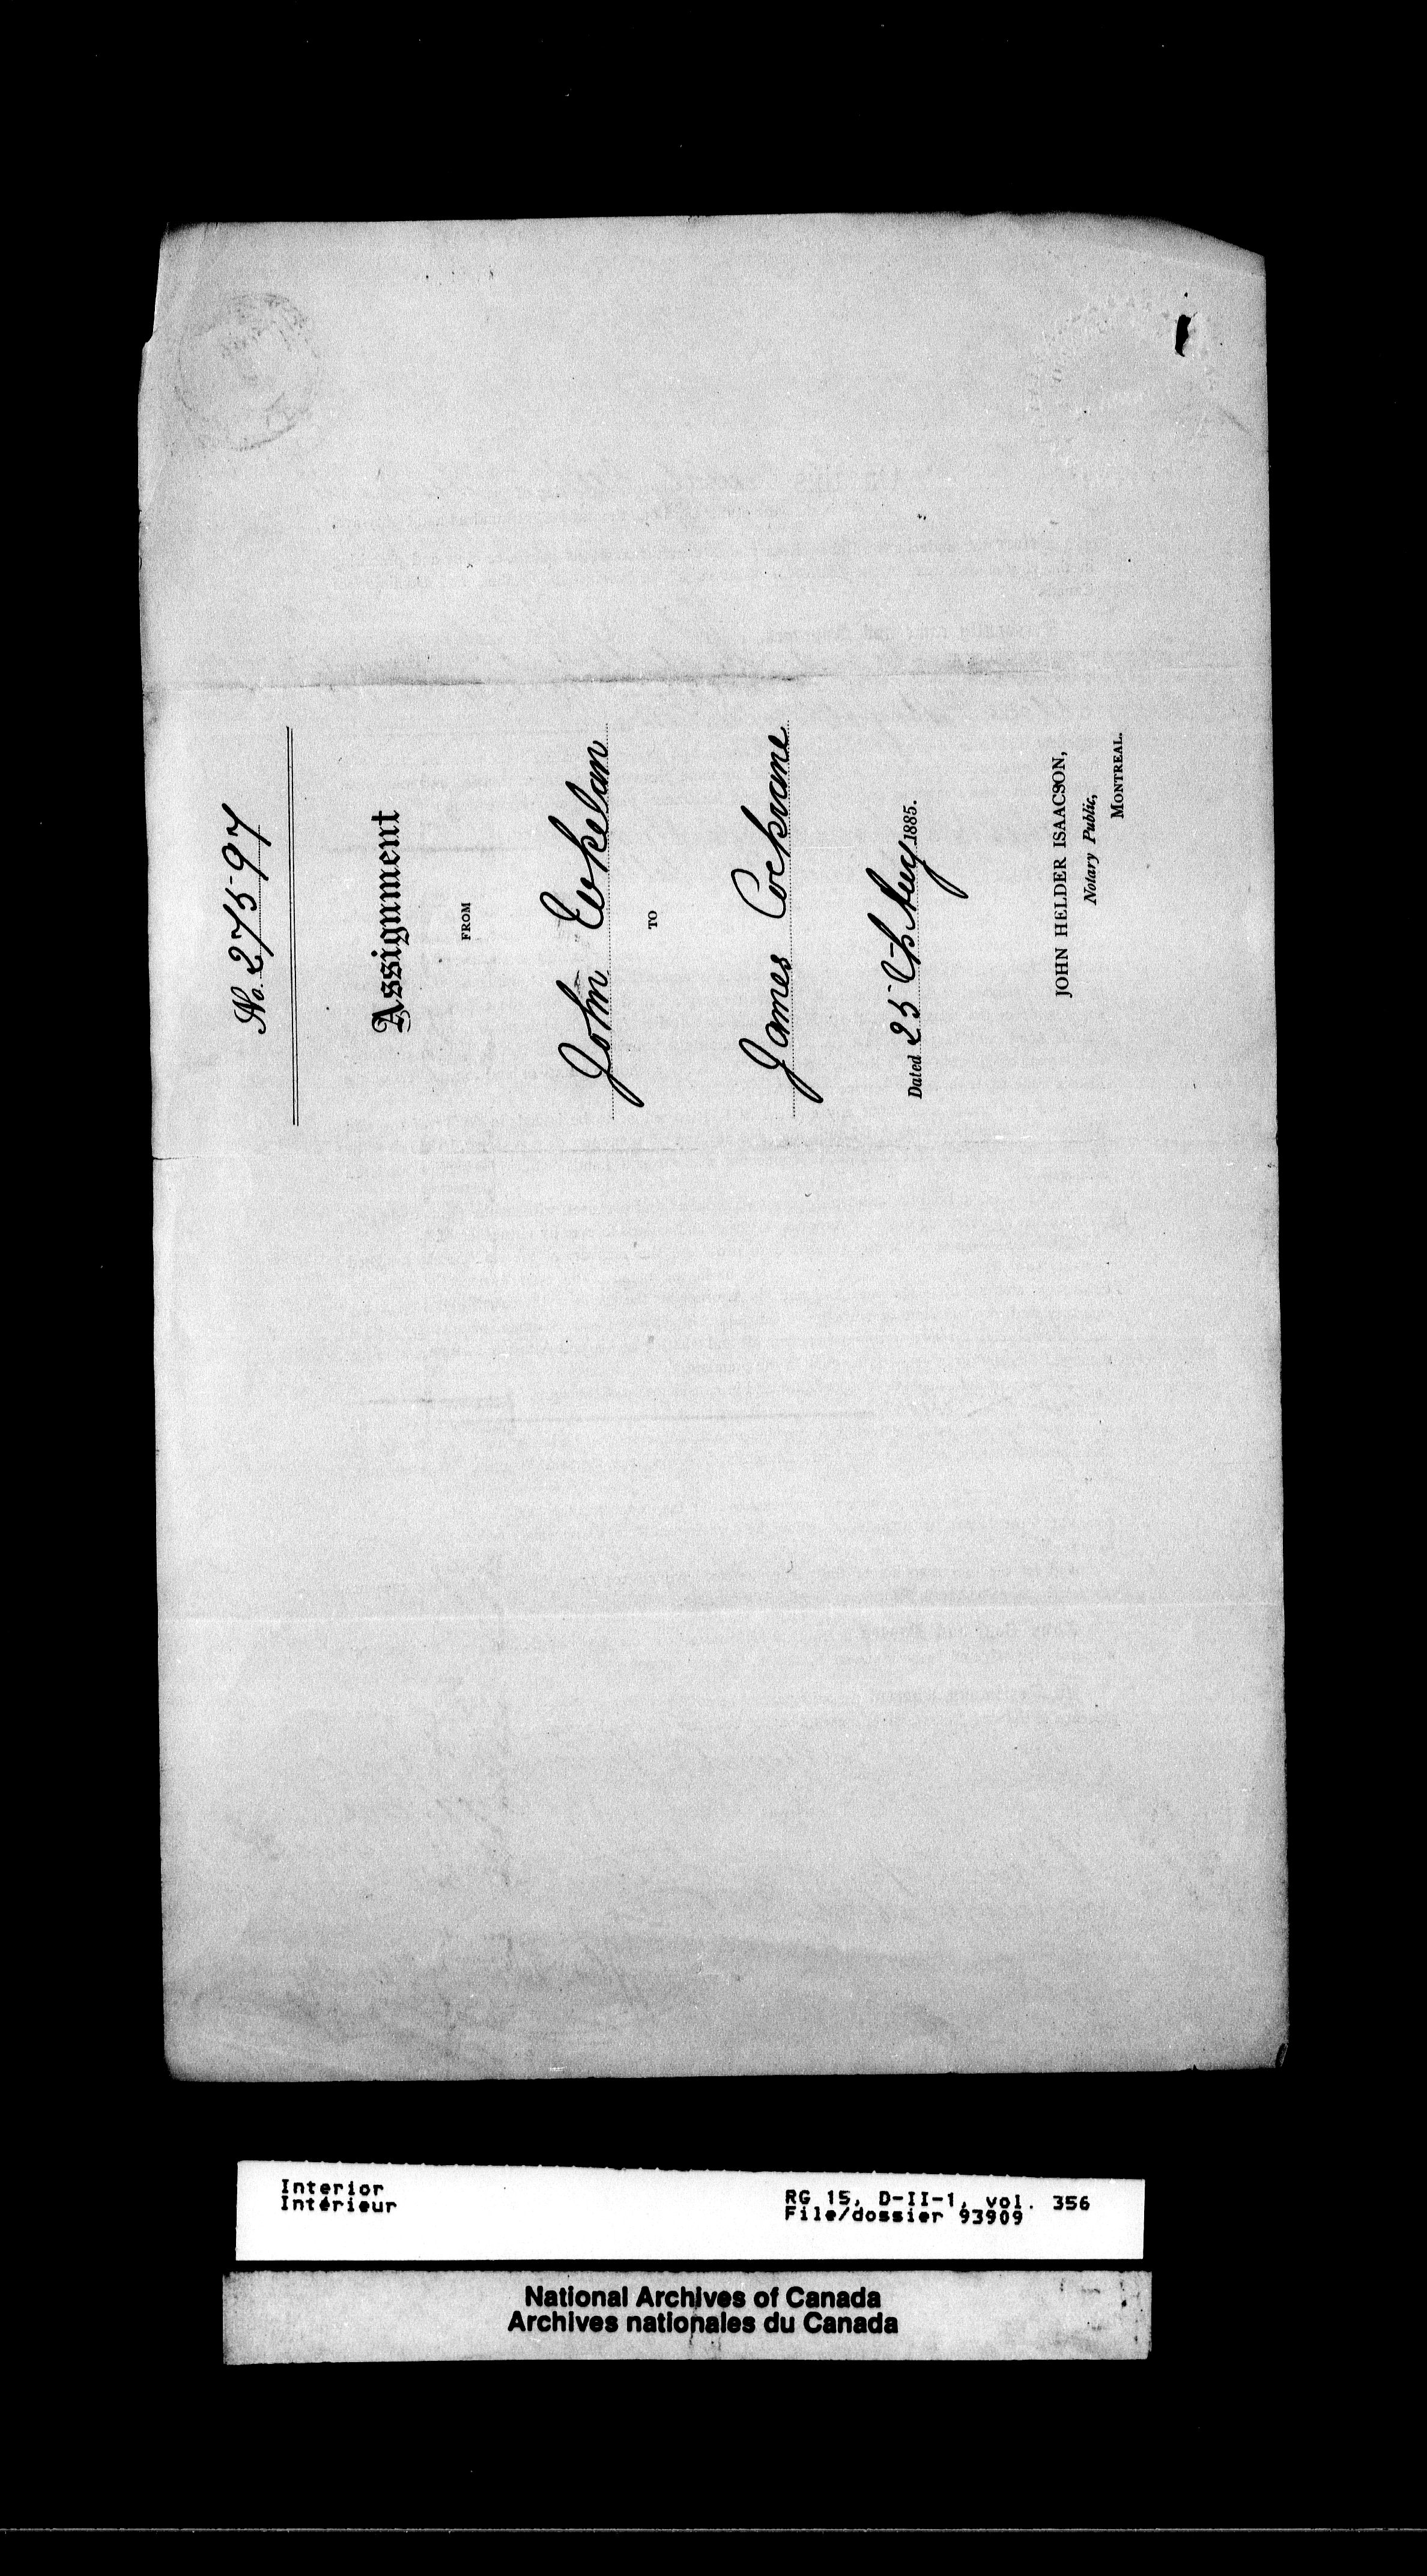 No. 27597
Assignment
FROM
John
TO
James Cockrane
Dated 25 1885.
JOHN HELDER ISAACSON,
Notary Public,
MONTREAL.
Interior
Intérieur
RG 15, D-II-1, vol. 356
File/dossier 93909
National Archives of Canada
Archives nationales du Canada